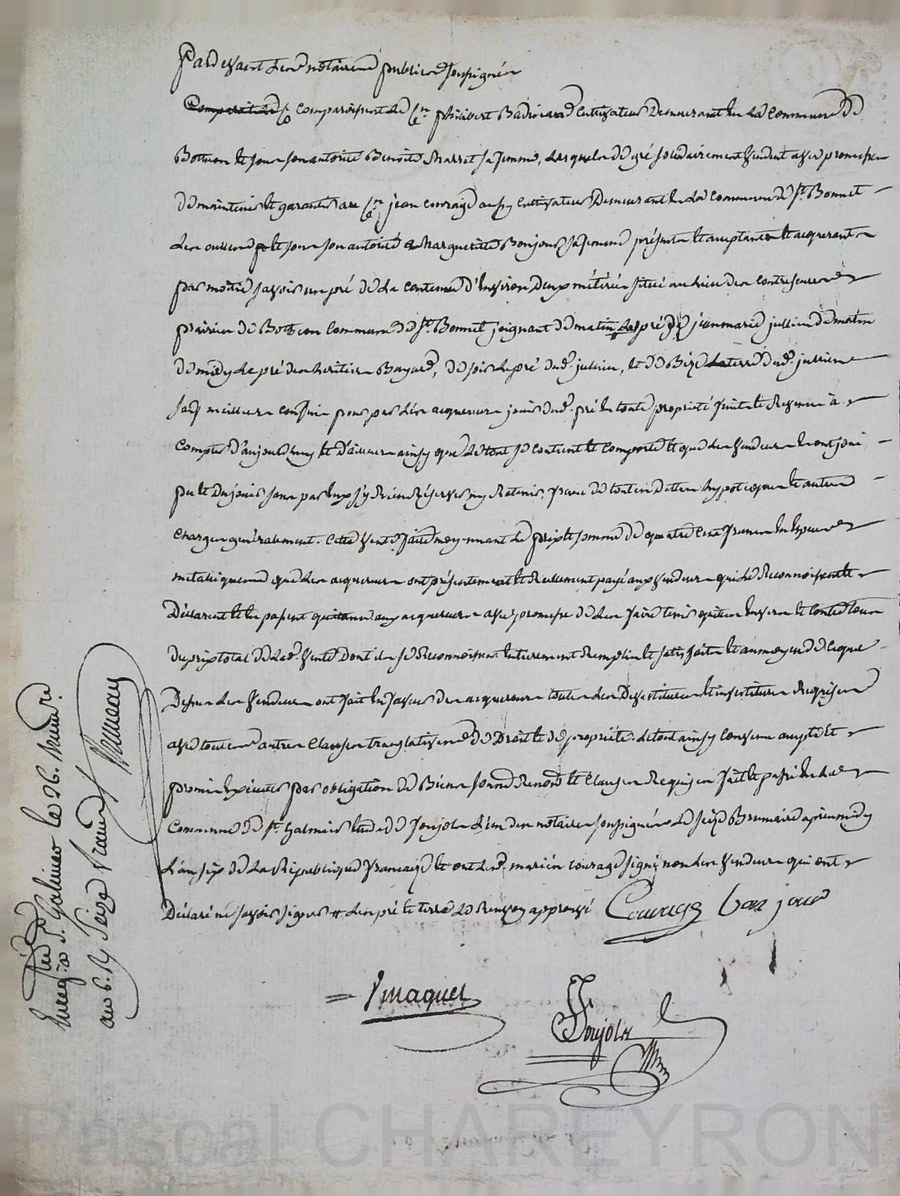 Pardevant les notaires publics soussignés
Comparait le comparoissent le Cen philibert Badinand Cultivateur Demeurant en la Commune de
Bothéon et sous son autorité Benoite Marret sa femme, Lesquels de gré solidairement Vendent avec promesse
de maintenir et garantir au Cen jean courage aussy Cultivateur Demeurant en la Commune de St. Bonnet
Les oulles et sous son autorité Marguerite Bonjour sa femme présents et acceptants et acquerant
par moitié savoir un pré de la contenue d'Environ deux métérée situé au lieu des
prairies de Botheon Commune de St. Bonnet joignant de matin le pré de jean marie jullien de matin
de midy le pré des heritiers Bayard, de soir le pré dud. jullien, et de Bize la terre dud. jullien
sauf meilleurs confins pour par Les acquereurs jouir dud. pré en toute propriété fruits et Revenus à
compter d'aujourd'huy et d'ainsy que le tout se contient et comporte et que les Vendeurs en ont joui
pu et du jouir sans par Eux s'y Rien Réserver ny Retenir, franc de toutes dettes hypoteques et autres
charges généralement. Cette Vente faite moyennant le prix et somme de quatre Cent francs en Especes
métalliques que les acquereurs ont présentement et Réellement payé aux Vendeurs qui le Reconnoissent et
Déclarent et en passent quittance aux acquereurs avec promesse de les faire tenir quittes Envers et contre tous
du prix total de lad. Vente Dont ils se Reconnoissent Entierement Remplis et satisfaits et au moyen de ce que
Dessus Les Vendeurs ont fait En faveur des acquereurs toutes les Devestitures et investitures Requises
avec toutes autres Clauses translatives de Droit et de propriété. le tout ainsy convenu accepté et
promis Exécuter par obligation de Biens soumis Renoncé et Clauses Requises fait et passé en la
Commune de St. Galmier Etude de Soujols L'un des notaires soussignés Le seize Brumaire après midy
L'an six de la République française et ont les mariés courage signé non les Vendeurs qui ont
Déclaré ne savoir signer
Courage Bonjour
Soujols
Enregistré à St. Galmier le 26 Brumre.
an 6. Rç Seize francs
Pascal CHAREYRON